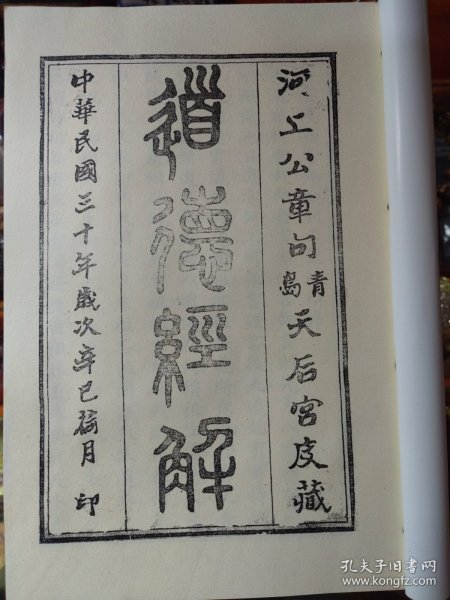 河上公章句 青島 天后宮皮藏
道德經解
中華民國三十年歲次辛巳荷月 印
孔夫子旧书网
www.kongfz.com